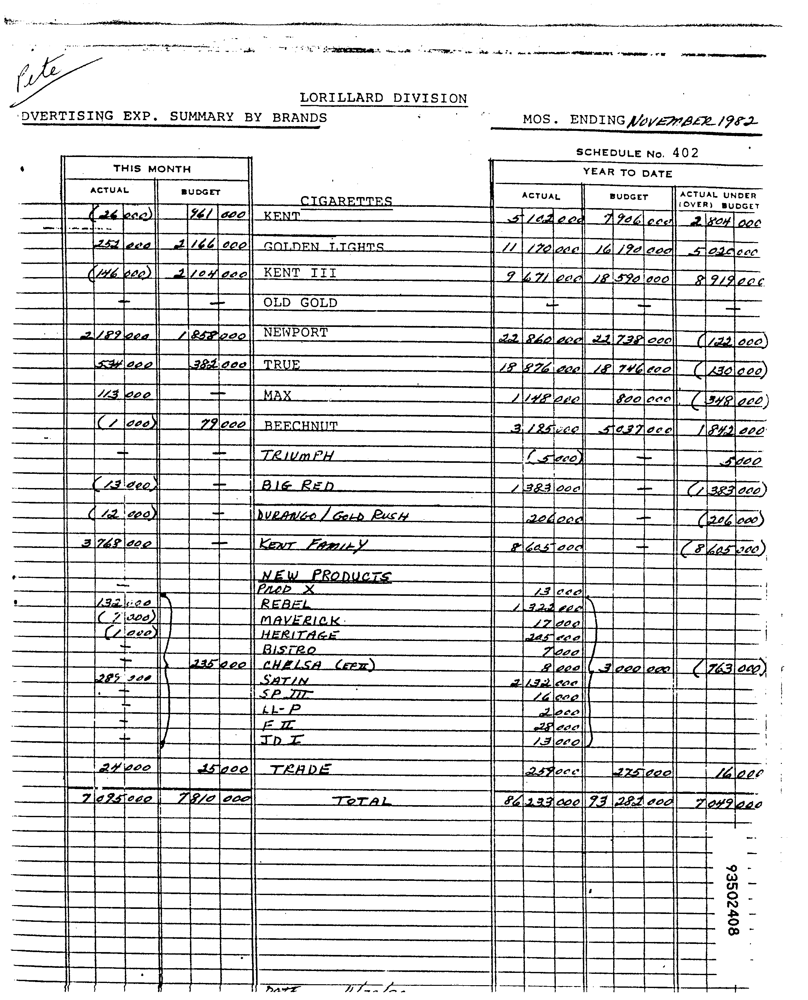 Pete
LORILLARD DIVISION
DVERTISING EXP. SUMMARY BY BRANDS MOS. ENDING NOVEMBER 1982
SCHEDULE No. 402
THIS MONTH YEAR TO DATE
ACTUAL BUDGET CIGARETTES ACTUAL BUDGET ACTUAL UNDER (OVER) BUDGET
(26 000) 961 000 KENT 5 102 000 7 906 000 2 804 000
252 000 2 166 000 GOLDEN LIGHTS 11 170 000 16 190 000 5 020 000
(146 000) 2 104 000 KENT III 9 671 000 18 590 000 8 919 000
— — OLD GOLD — — —
2 189 000 1 858 000 NEWPORT 22 860 000 22 738 000 (122 000)
534 000 382 000 TRUE 18 876 000 18 746 000 (130 000)
113 000 — MAX 1 148 000 800 000 (348 000)
(1 000) 79 000 BEECHNUT 3 195 000 5 037 000 1 842 000
— — TRIUMPH (5 000) — 5 000
(13 000) — BIG RED 1 383 000 — (1 383 000)
(12 000) — DURANGO/GOLD RUSH 206 000 — (206 000)
3 768 000 — KENT FAMILY 8 605 000 — (8 605 000)
NEW PRODUCTS
— PROD X 13 000
132 000 REBEL 1 322 000
(7 000) MAVERICK 17 000
(1 000) HERITAGE 205 000
— BISTRO 7 000
— 235 000 CHELSA (EFII) 8 000 3 000 000 (763 000)
289 000 SATIN 2 132 000
— SP III 16 000
— LL-P 2 000
— F II 28 000
— JD I 13 000
24 000 25 000 TRADE 259 000 275 000 16 000
7 095 000 7 810 000 TOTAL 86 233 000 93 282 000 7 049 000
93502408
DATE